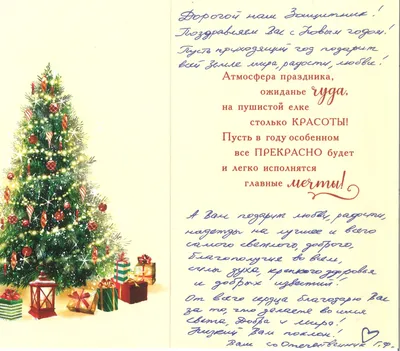 Дорогой наш Защитник!
Поздравляем Вас с Новым годом!
Пусть приходящий год подарит
всей Земле мира, радости, любви!
Атмосфера праздника,
ожиданье чуда.
на пушистой елке
столько КРАСОТЫ!
Пусть в году особенном
все ПРЕКРАСНО будет
и легко исполнятся
главные мечты!
А Вам подарит любви, радости,
надежды на лучшее и всего
самого светлого, доброго,
благополучия во всем,
силы духа, крепкого здоровья
и добрых известий!
От всего сердца благодарю Вас
за то, что делаете во имя
света, Добра и мира!
Низкий Вам поклон!